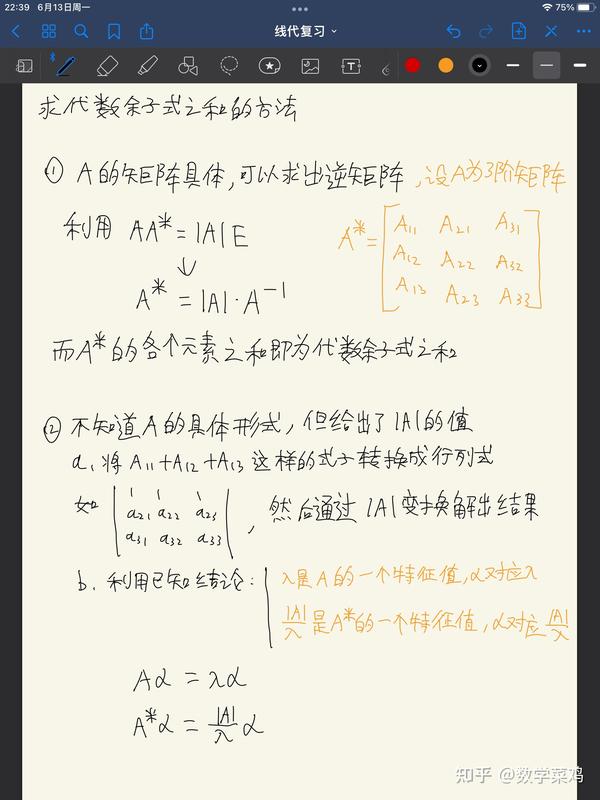 22:39 6月13日周一
75%
线代复习
求代数余子式之和的方法
① A的矩阵具体,可以求出逆矩阵,设A为3阶矩阵
利用 AA*=|A|E
A*=
A₁₁ A₂₁ A₃₁
A₁₂ A₂₂ A₃₂
A₁₃ A₂₃ A₃₃
↓
A*=|A|·A⁻¹
而A*的各个元素之和即为代数余子式之和
② 不知道A的具体形式,但给出了|A|的值
a.将A₁₁+A₁₂+A₁₃这样的式子转换成行列式
如
1 1 1
a₂₁ a₂₂ a₂₃
a₃₁ a₃₂ a₃₃
,然后通过|A|变换解出结果
b.利用已知结论:
λ是A的一个特征值,α对应λ
|A|/λ是A*的一个特征值,α对应|A|/λ
Aα=λα
A*α=|A|/λ α
知乎 @数学菜鸡